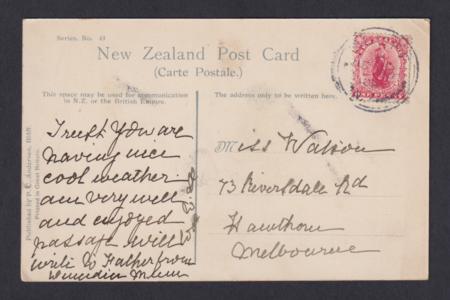 Series. No. 49
New Zealand Post Card
(Carte Postale.)
This space may be used for communication
in N.Z. or the British Empire.
The address only to be written here.
I trust you are
having nice
cool weather
am very well
and enjoyed
passage will
write to Father from
Dunedin
Miss Watson
73 Riversdale Rd
Hawthorn
Melbourne
Printed in Great Britain.